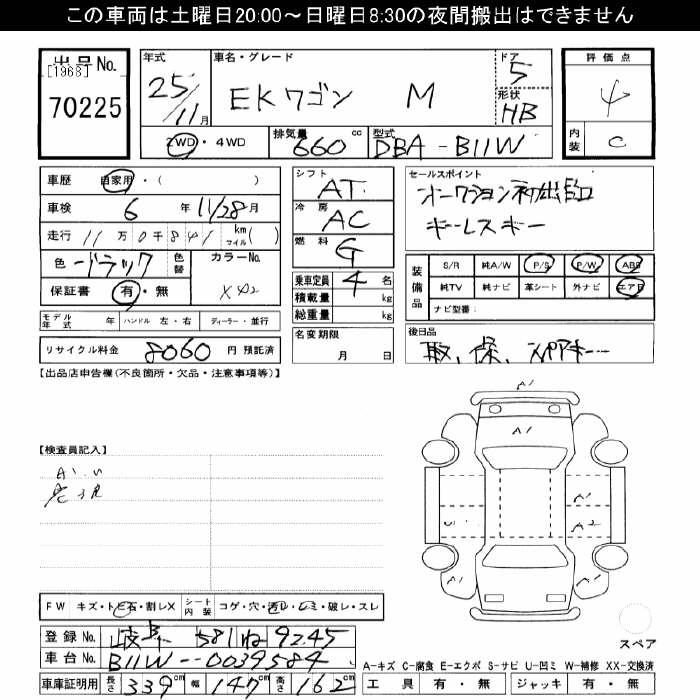 この車両は土曜日20:00～日曜日8:30の夜間搬出はできません
出品No.
[1968]
70225
年式
25/11月
車名・グレード
EKワゴン M
ドア
5
形状
HB
2WD・4WD
排気量
660 cc
型式
DBA-B11W
評価点
4
内装
C
車歴 自家用・( )
車検 6年 11/28月
走行 11万0千841 km マイル( )
色 ブラック 色替
カラーNo.
X42
保証書 有・無
モデル年式 年 ハンドル 左・右 ディーラー・並行
リサイクル料金 8060 円 預託済
シフト
AT
冷房
AC
燃料
G
乗車定員 4 名
積載量 kg
総重量 kg
名変期限
月 日
セールスポイント
オークション初出品
キーレスキー
装備品
S/R 純A/W P/S P/W ABS
純TV 純ナビ 革シート 外ナビ エアB
ナビ型番:
後日品
取、保、スペアキー
【出品店申告欄(不良箇所・欠品・注意事項等)】
【検査員記入】
A1
A1
A1
A2
U1
A1
A1
スペア
FW キズ・トビ石・割レX
シート内装 コゲ・穴・汚レ・シミ・破レ・スレ
登録No. 岐阜 581 ね 9245
車台No. B11W--0039584
車庫証明用 長さ 339cm 幅 147cm 高さ 162cm
A-キズ C-腐食 E-エクボ S-サビ U-凹ミ W-補修 XX-交換済
工具 有・無 ジャッキ 有・無